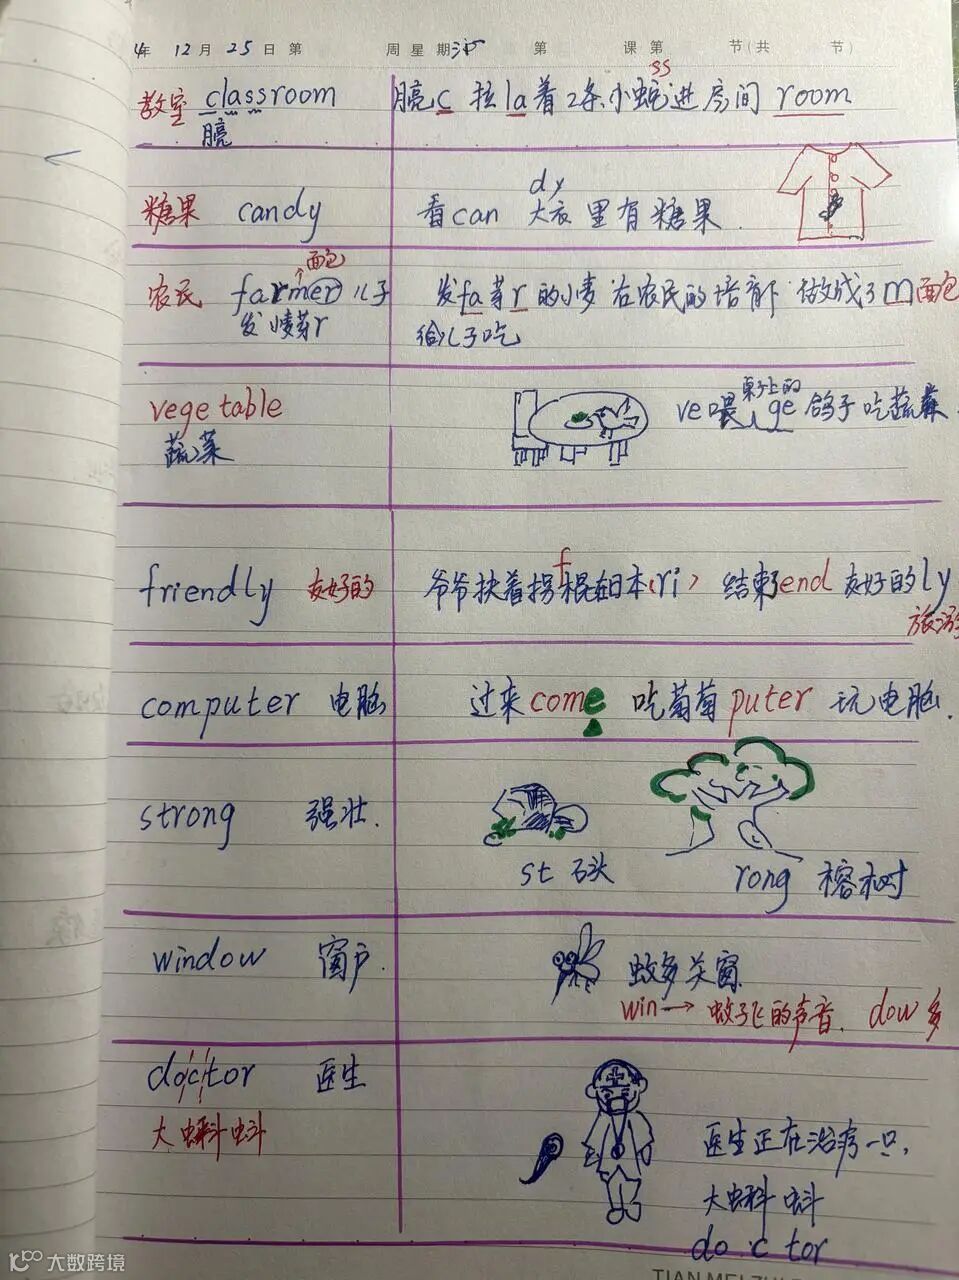 年 12月 25日 第 周 星期 第 课 第 节(共 节)
教室 classroom
亮
亮c 拉la着2条小蛇进房间 room
ss
糖果 candy
看can 大衣里有糖果
dy
面包
农民 farmer 儿子
发 芽r
发fa芽r的小麦在农民的培育下 做成了m面包
给儿子吃
vegetable
蔬菜
桌子上的
ve喂 ge鸽子吃蔬菜
friendly 友好的
f
爷爷扶着拐棍在日本(ri) 结束end 友好的ly
旅游
computer 电脑
过来come 吃葡萄puter 玩电脑.
strong 强壮.
st 石头
rong 榕树
window 窗户.
蚊多关窗
win→ 蚊子飞的声音. dow 多
doctor 医生
大蝌蚪
医生正在治疗一只,
大蝌蚪
do c tor
大数跨境